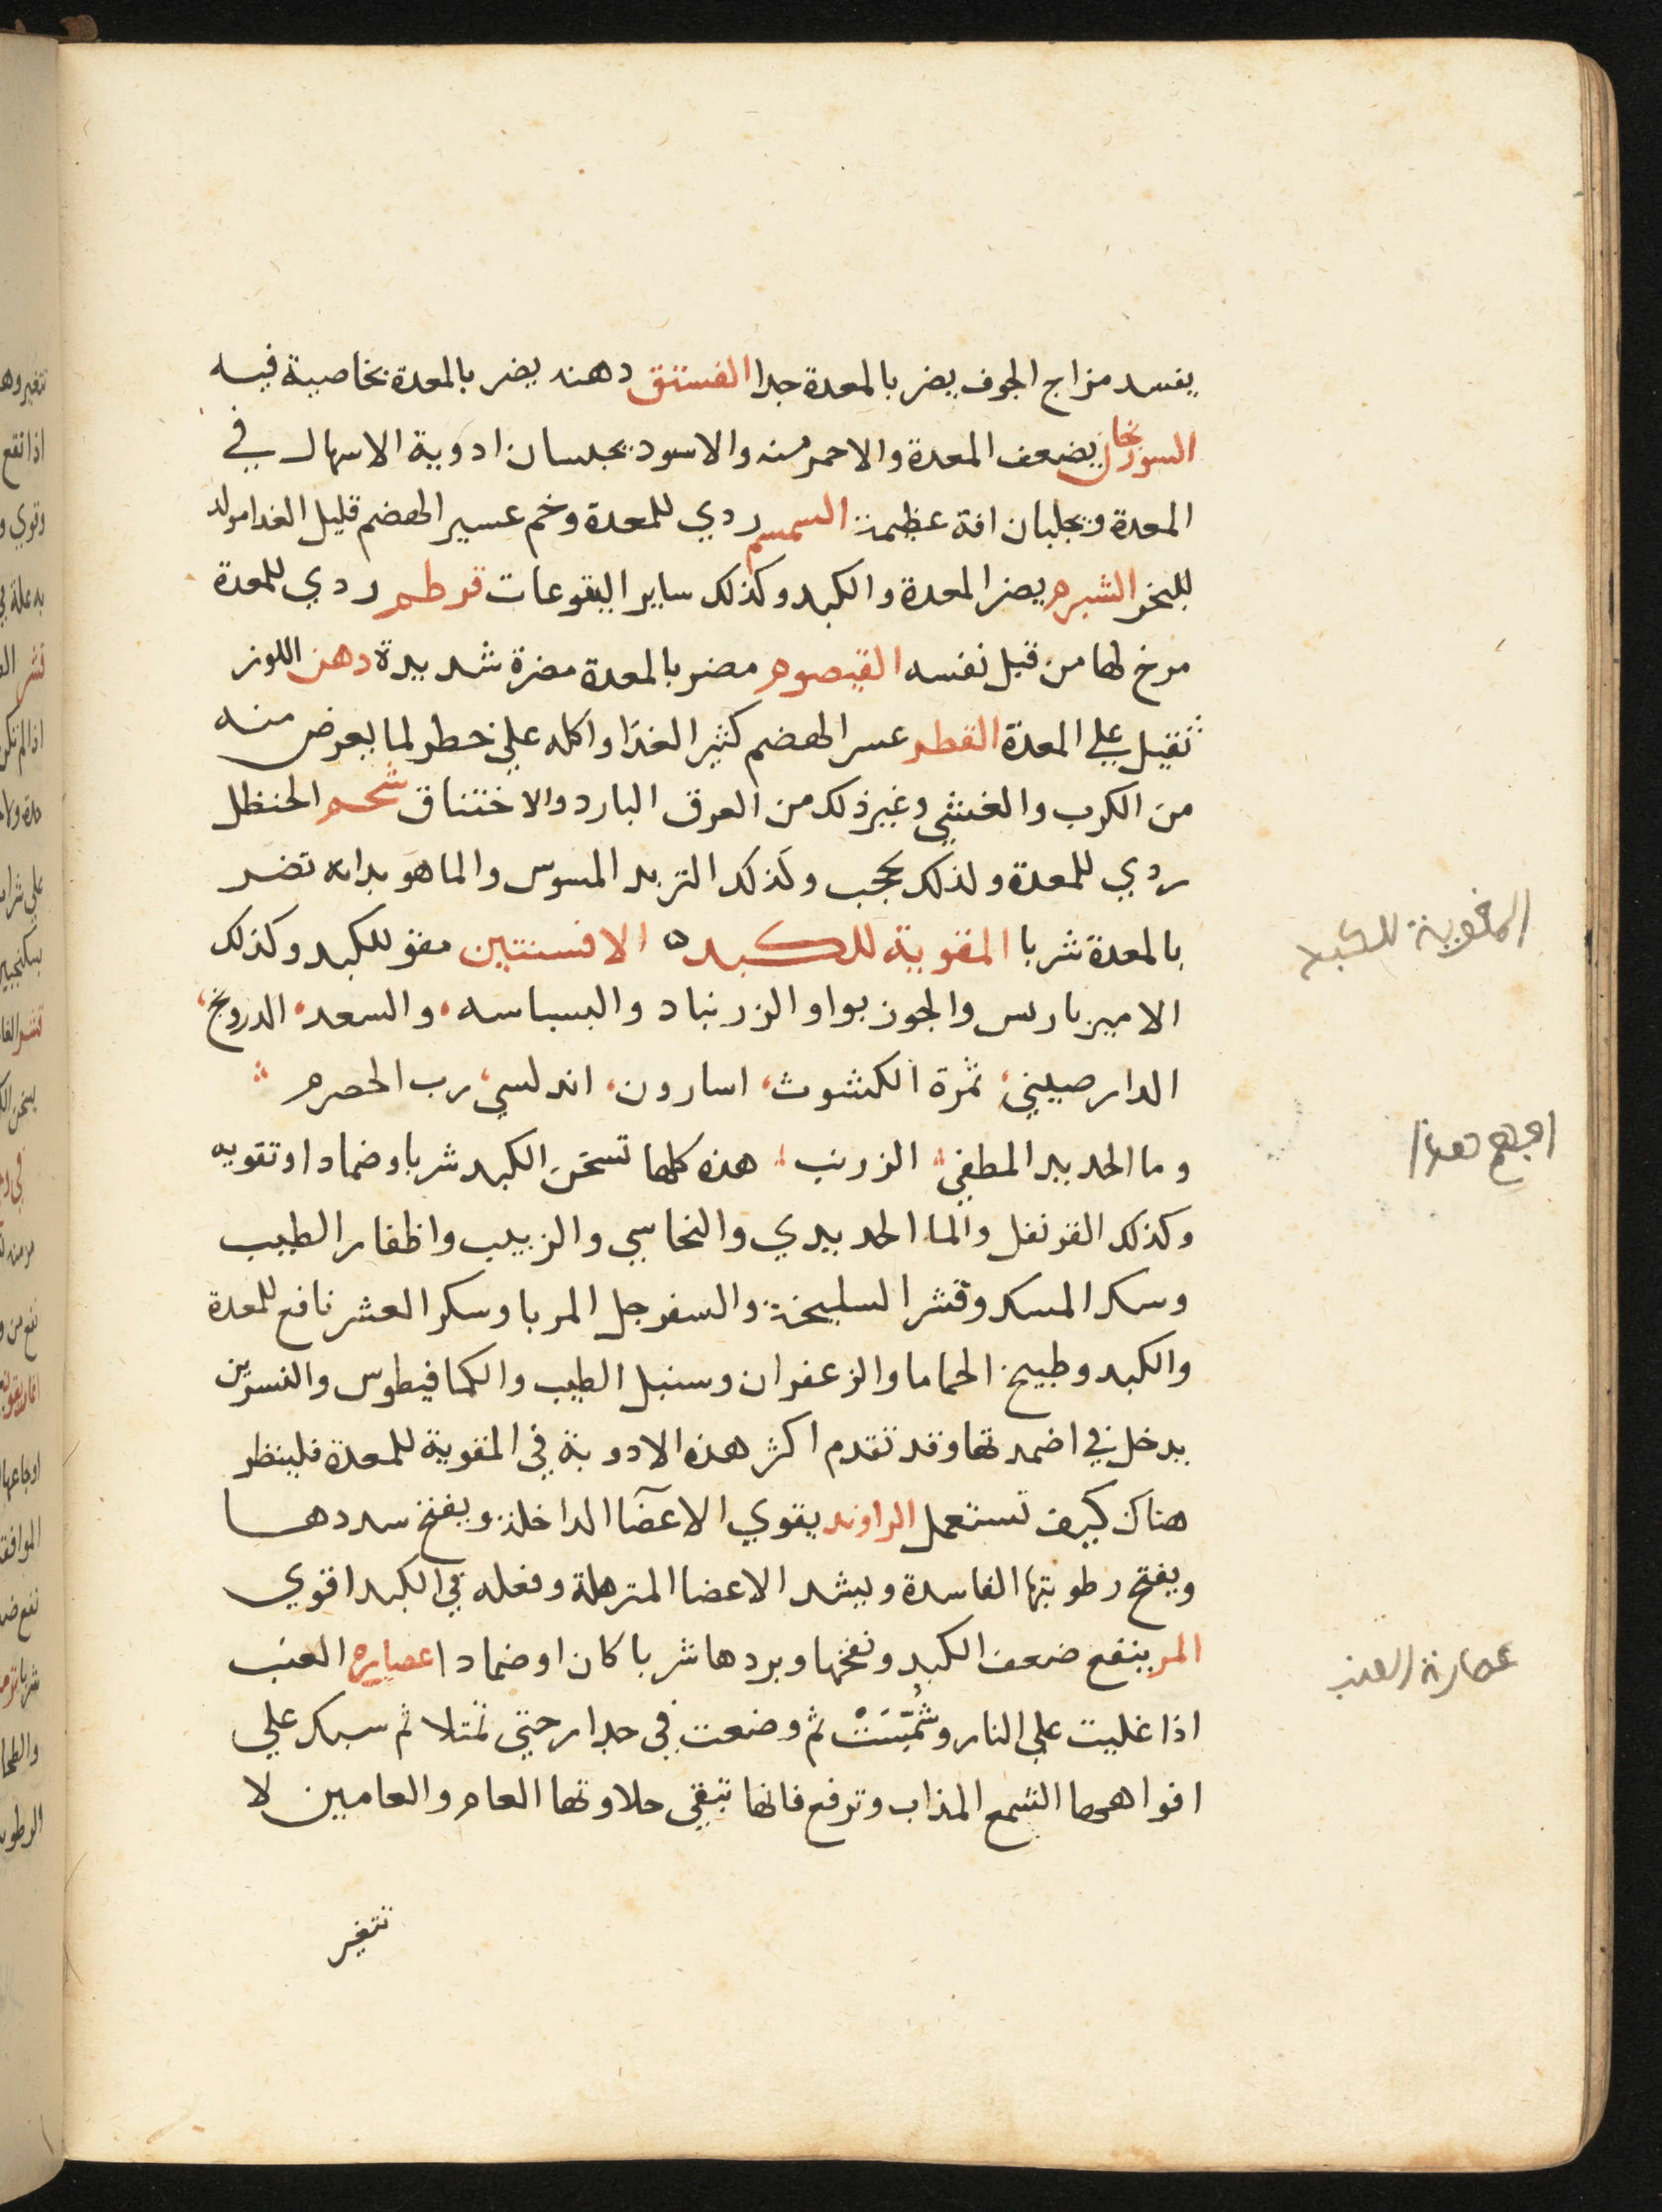 يفسد مزاج الجوف يضر بالمعدة جدا الفستق دهنه يضر بالمعدة بخاصية فيه
السورنجان يضعف المعدة والاحمر منه والاسود يحبسان ادوية الاسهال في
المعدة ويجلبان افة عظيمة السمسم ردي للمعدة وخم عسير الهضم قليل الغدا مولد
للبخر الشبرم يضر المعدة والكبد وكذلك ساير اليتوعات قرطم ردي للمعدة
مرخ لها من قبل نفسه القيصوم مضر بالمعدة مضرة شديدة دهن اللوز
ثقيل علي المعدة الفطر عسر الهضم كثير الغذا واكله علي خطر لما يعرض منه
من الكرب والغشي وغير ذلك من العرق البارد والاختناق شحم الحنظل
ردي للمعدة ولذلك يحجب وكذلك التربد المسوس والماهو بدانه تضر
بالمعدة شربا المقوية للكبد ه الافسنتين مقو للكبد وكذلك
الاميرباريس والجوزبوا والزرنباد والبسباسه والسعد الدرونج
الدارصيني ثمرة الكشوث اسارون اندلسي رب الحصرم
وما الحديد المطفي الزرنب هذه كلها تسخن الكبد شربا وضمادا وتقويه
وكذلك القرنفل والما الحديدي والنحاسي والزبيب واظفار الطيب
وسك المسك وقشر السليخة والسفرجل المربا وسكر العشر نافع للمعدة
والكبد وطبيخ الحماما والزعفران وسنبل الطيب والكمافيطوس والنسرين
يدخل في اضمدتها وقد تقدم اكثر هذه الادوية في المقوية للمعدة فلينظر
هناك كيف تستعمل الراوند يقوي الاعضا الداخلة ويفتح سددها
ويفتح رطوبتها الفاسدة ويشد الاعضا المترهلة وفعله في الكبد اقوي
المر ينفع ضعف الكبد ونفخها وبردها شربا كان او ضمادا عصاره العنب
اذا غليت علي النار وشمست ثم وضعت في جرار حتي تمتلا ثم سبك علي
افواهها الشمع المذاب وترفع فانها تبقي حلاوتها العام والعامين لا
تتغير
المقوية للكبد
عصارة العنب